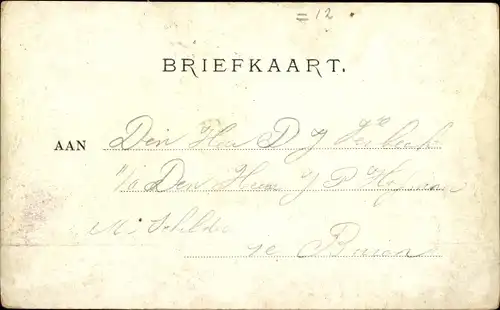 = 12
BRIEFKAART.
AAN Den Heer D J
p/a Den Heer J P
Mr Schilder
te